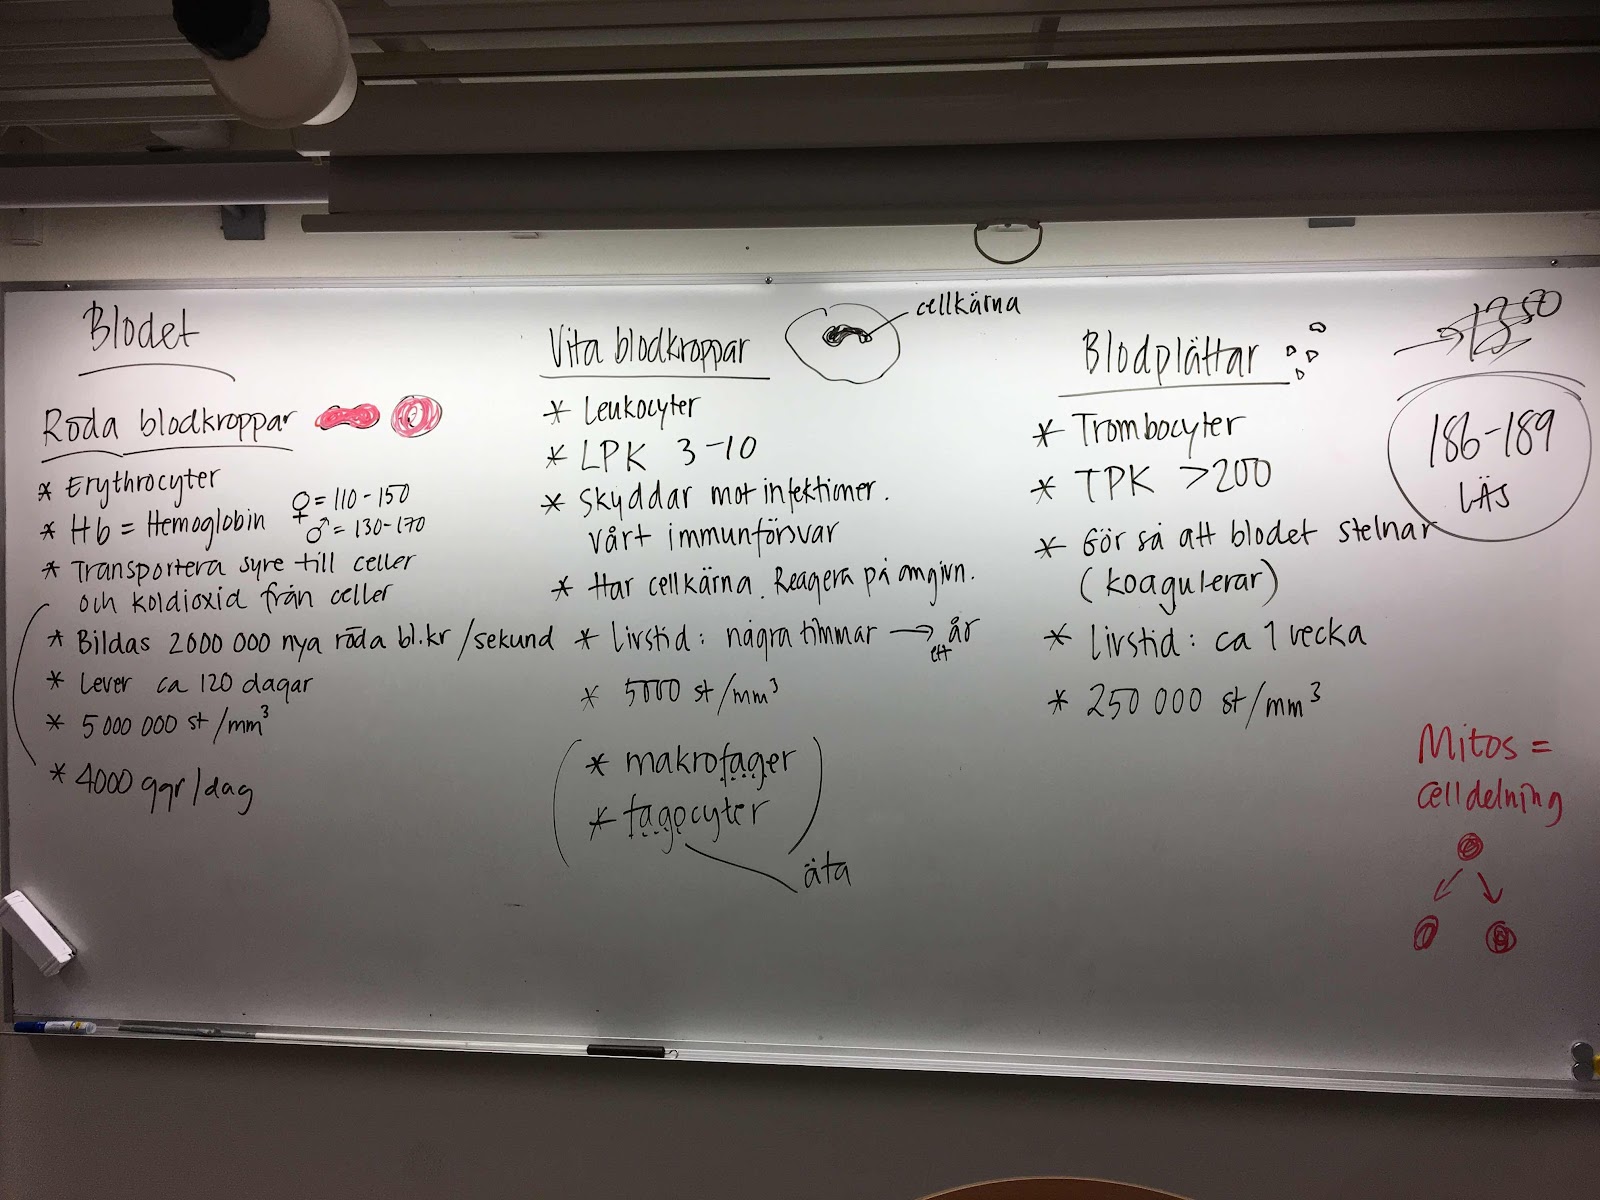 Blodet
Röda blodkroppar
* Erythrocyter
* Hb = Hemoglobin ♀ = 110-150
♂ = 130-170
* Transportera syre till celler
och koldioxid från celler
* Bildas 2000 000 nya röda bl.kr/sekund
* Lever ca 120 dagar
* 5 000 000 st/mm³
* 4000 ggr/dag
Vita blodkroppar
cellkärna
* Leukocyter
* LPK 3-10
* Skyddar mot infektioner.
vårt immunförsvar
* Har cellkärna. Reagera på omgivn.
* Livstid: några timmar → år
ett
* 5000 st/mm³
(* makrofager
* fagocyter)
äta
Blodplättar
* Trombocyter
* TPK >200
* Gör så att blodet stelnar
(koagulerar)
* Livstid: ca 1 vecka
* 250 000 st/mm³
186-189
LÄS
Mitos =
celldelning